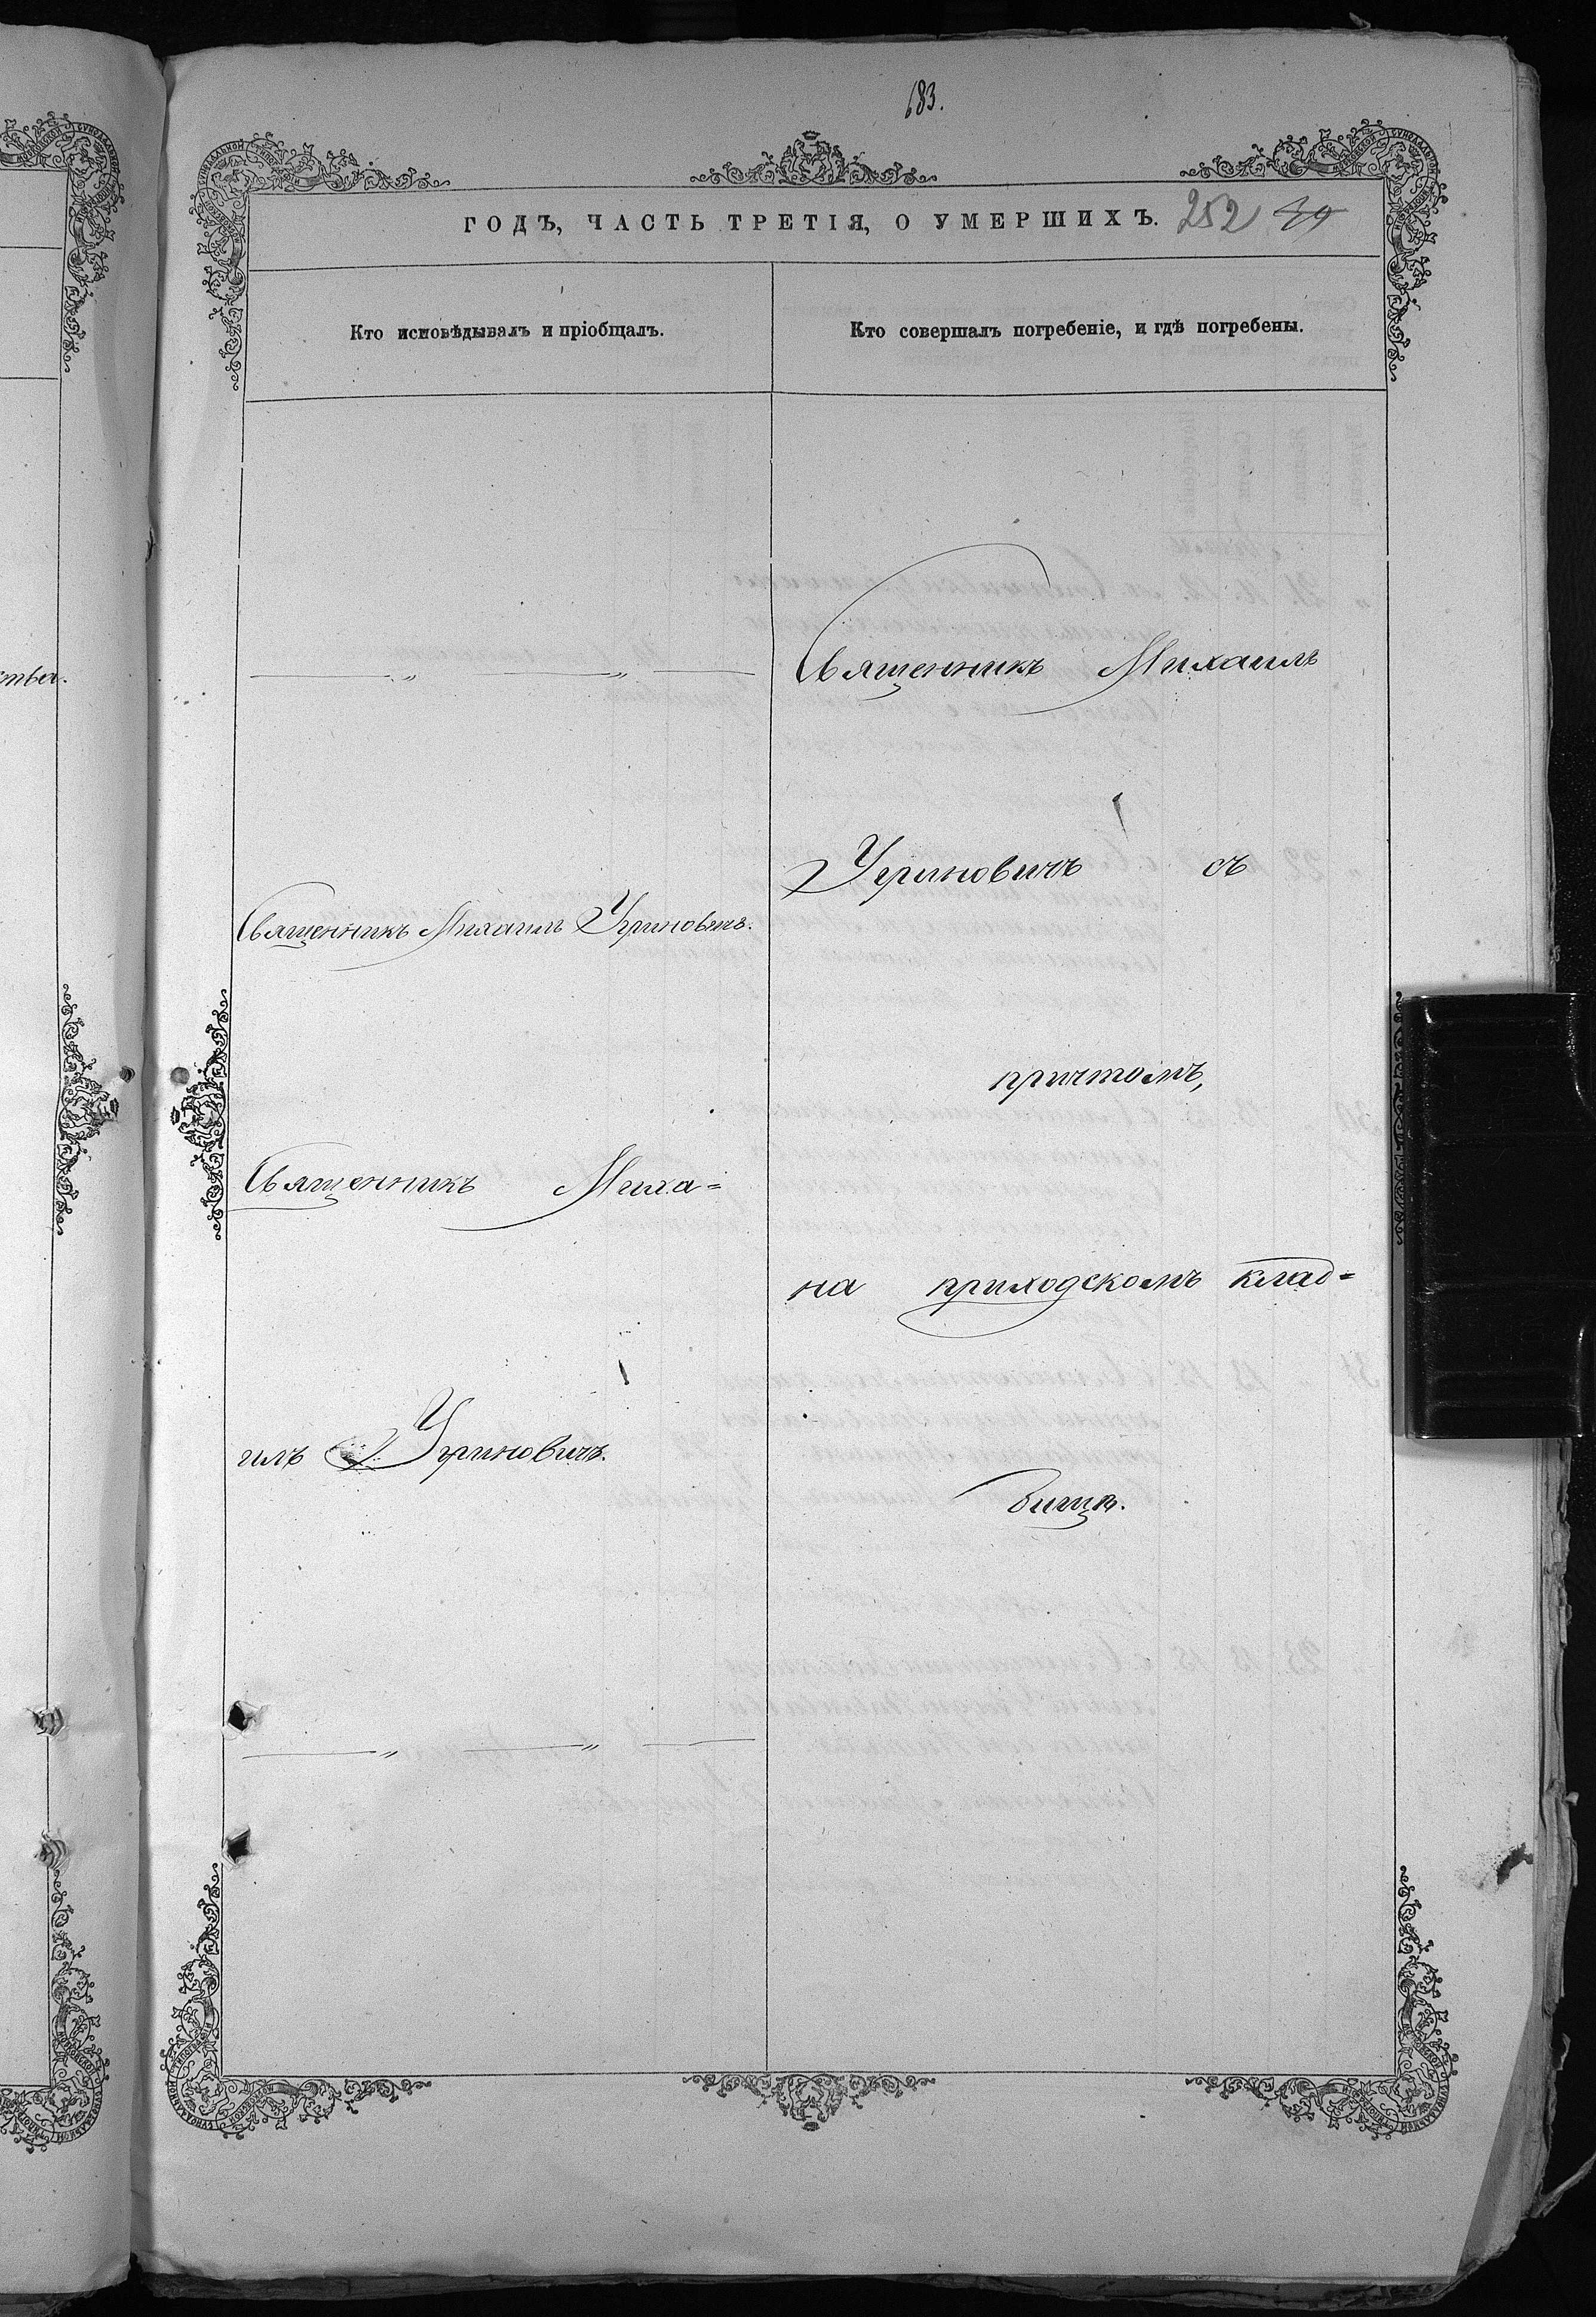 183.
ГОДЪ, ЧАСТЬ ТРЕТІЯ, О УМЕРШИХЪ. 252
Кто исповѣдывалъ и пріобщалъ.
Кто совершалъ погребеніе, и гдѣ погребены.
— „ — „ —
Священникъ Михаилъ Угриновичъ.
Священникъ Миха=
илъ Угриновичъ.
— „ — „ —
Священникъ Михаилъ
Угриновичъ съ
причтомъ,
на приходскомъ клад=
бищѣ.